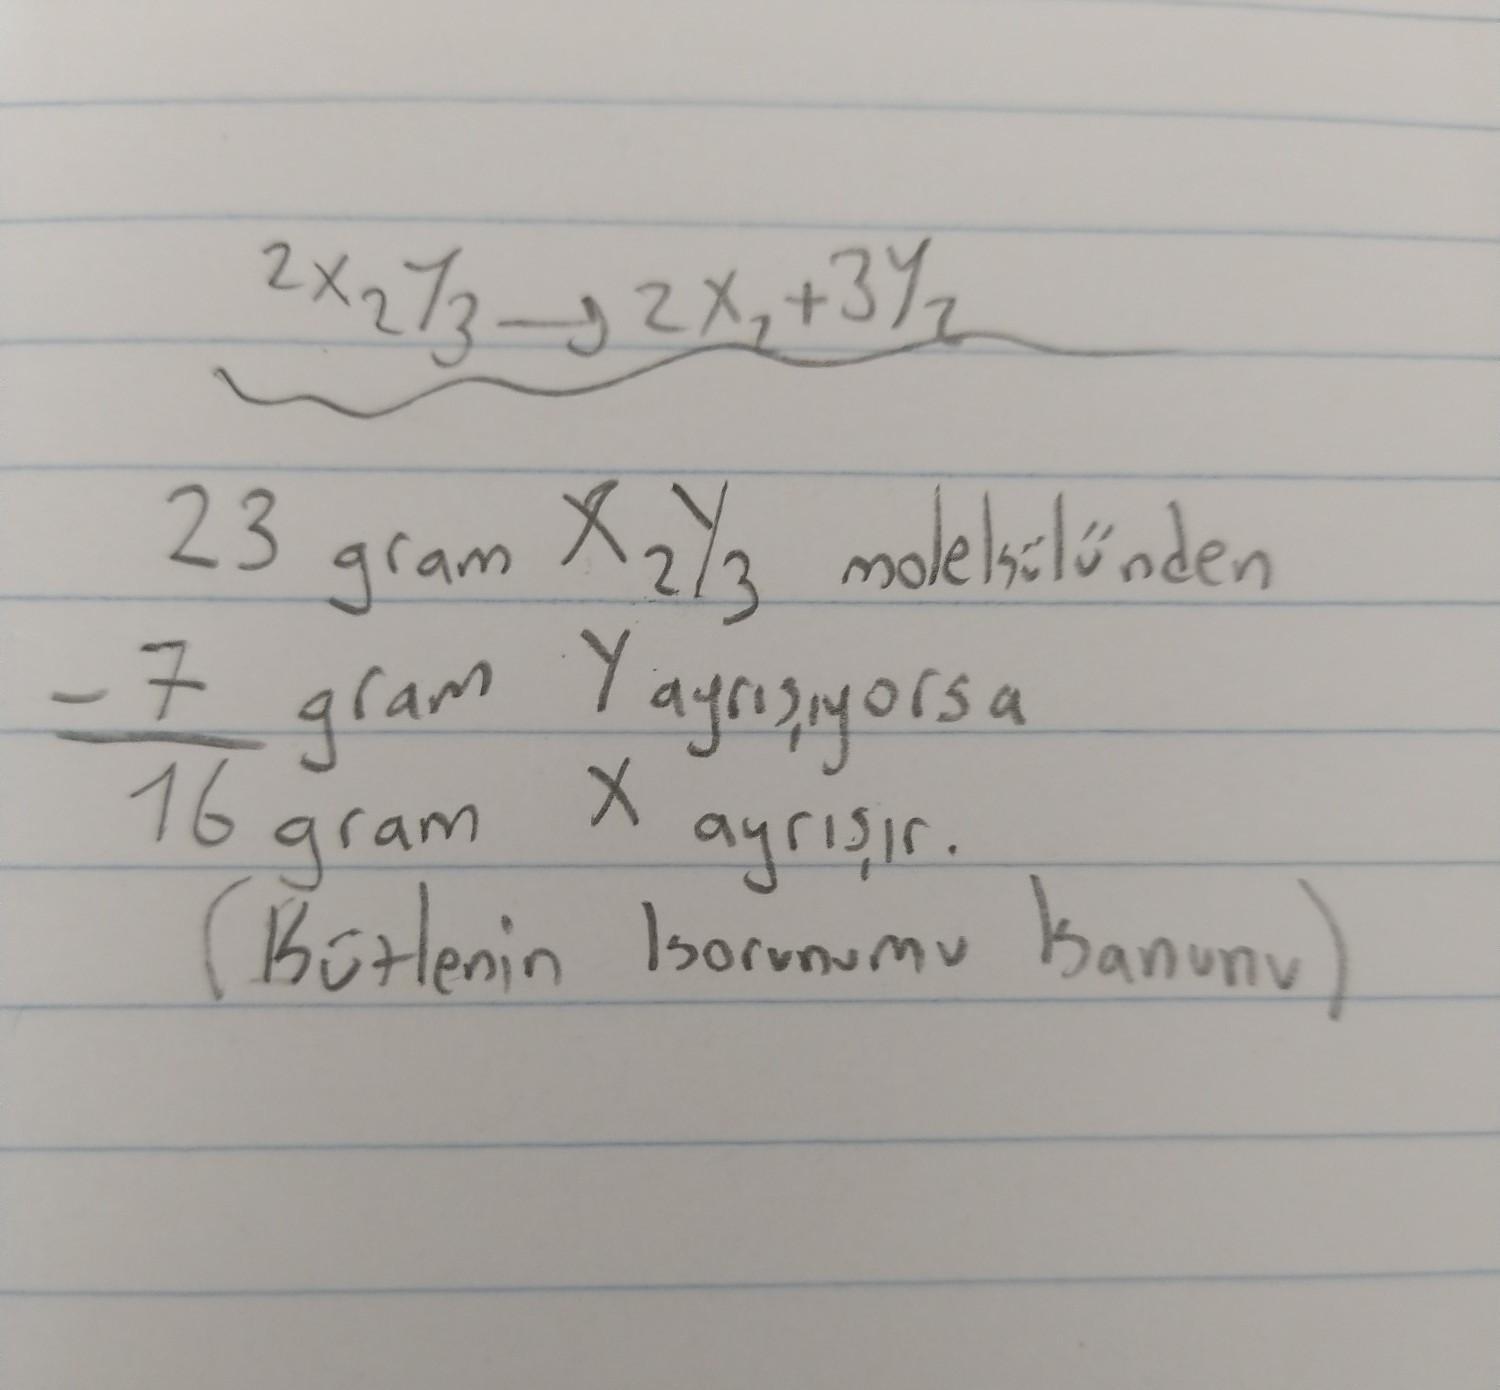 2X₂Y₃ → 2X₂ + 3Y₂
23 gram X₂Y₃ molekülünden
- 7 gram Y ayrışıyorsa
16 gram X ayrışır.
(Kütlenin korunumu kanunu)